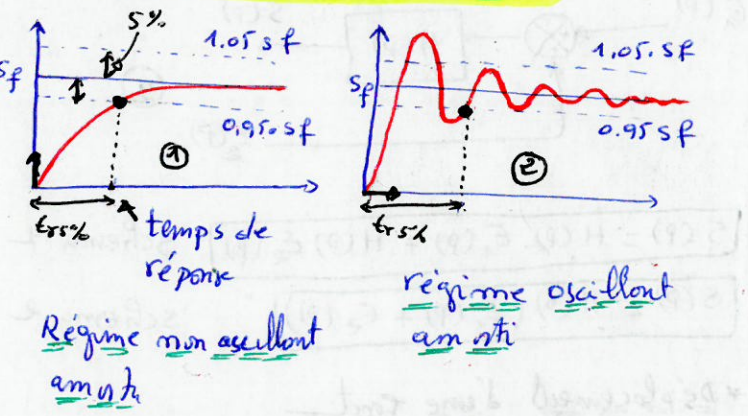 5%
1.05 sf
sf
0,95.sf
①
tr5%
temps de
réponse
Régime non oscillant
amorti
1,05.sf
sf
0.95 sf
②
tr5%
régime oscillant
amorti